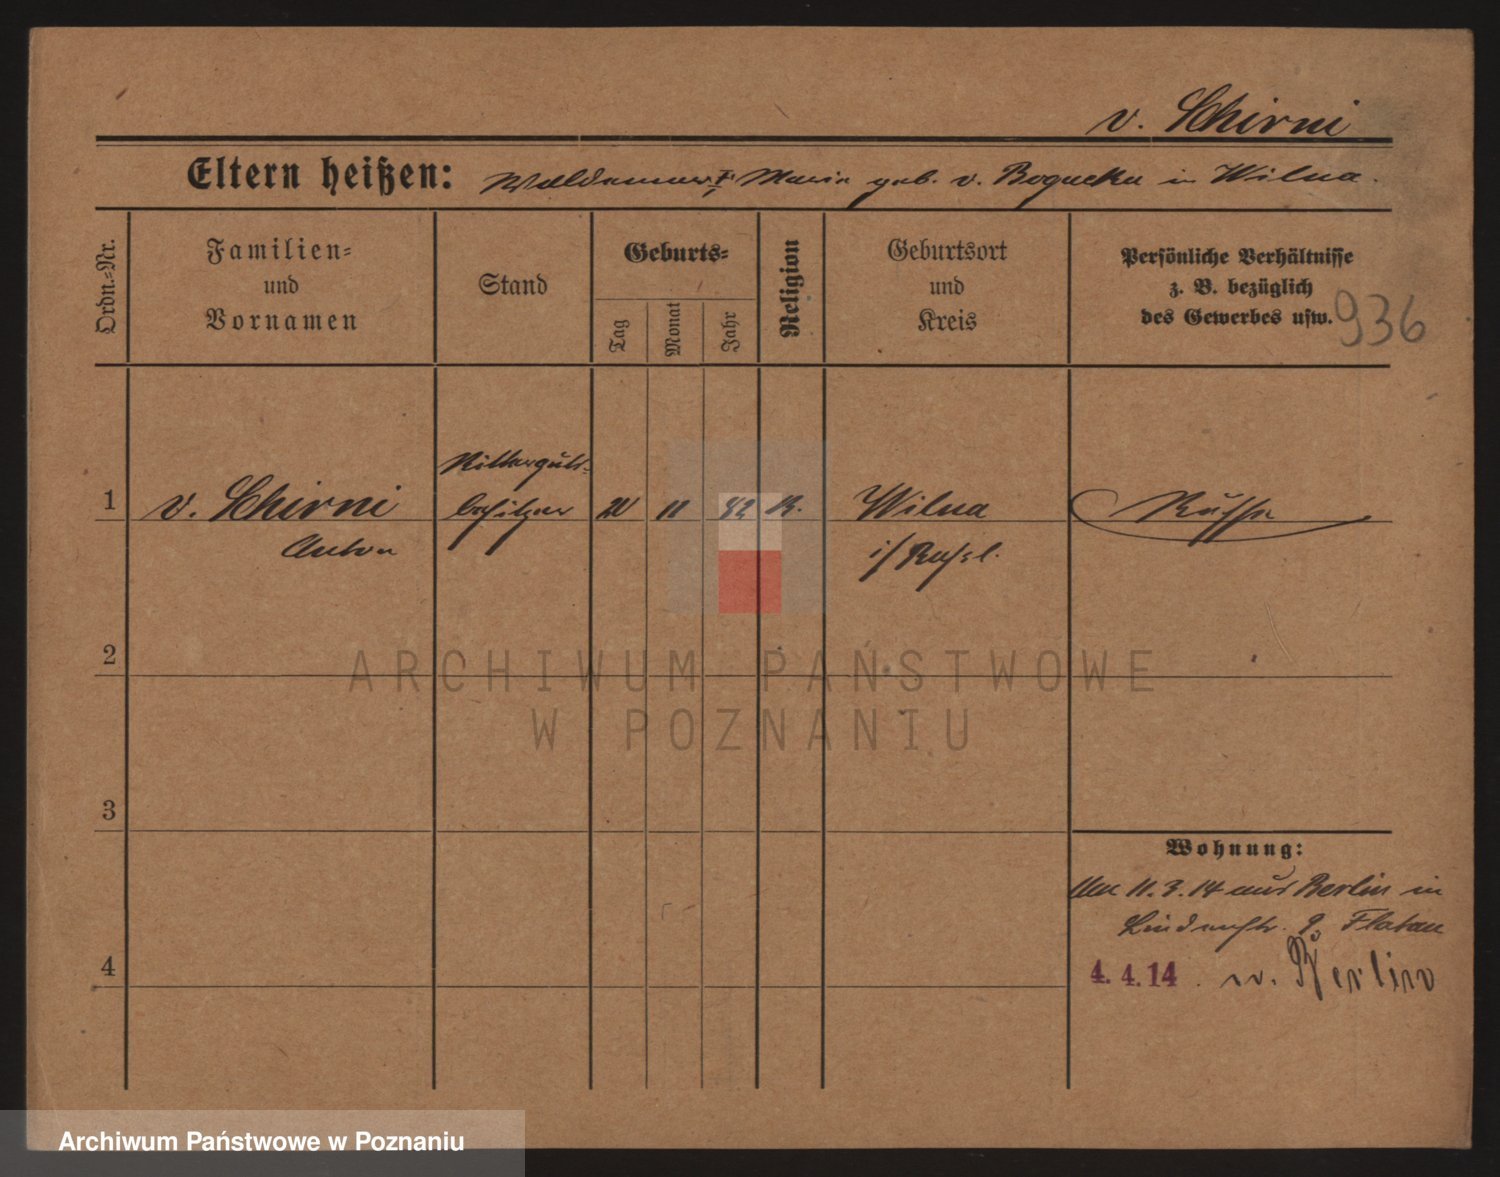 v. Schirni
Eltern heißen: Waldemar u. Marie geb. v. Bogucka in Wilna.
Ordn.-Nr.
Familien- und Vornamen
Stand
Geburts-
Tag
Monat
Jahr
Religion
Geburtsort und Kreis
Persönliche Verhältnisse
z. B. bezüglich
des Gewerbes usw.
936
Ritterguts-
1 v. Schirni besitzer 11 82 K. Wilna Russe
Anton i/ Rußl.
2
ARCHIWUM PAŃSTWOWE
W POZNANIU
3
Wohnung:
Am 11.3.14 aus Berlin in
Lindenstr. 9. Flatau
4
4. 4. 14 n. Berlin
Archiwum Państwowe w Poznaniu